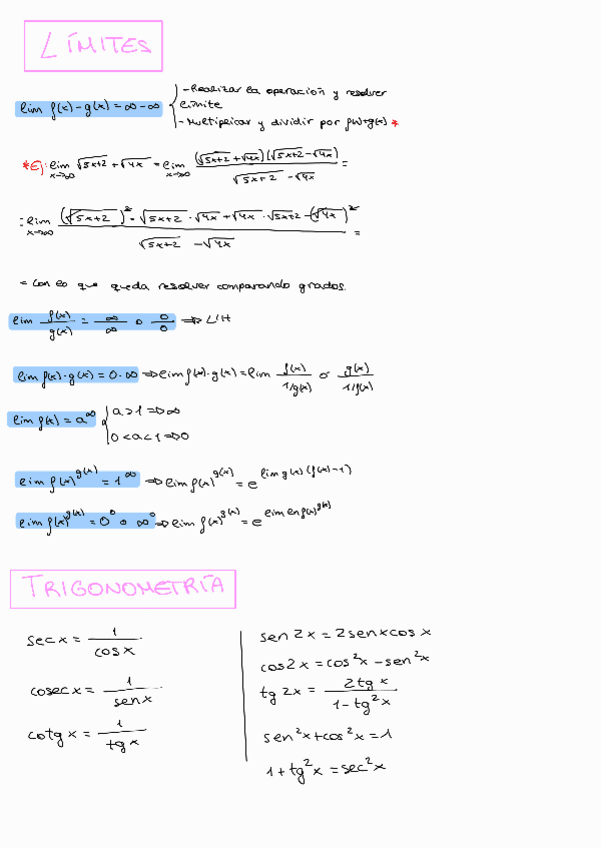 LÍMITES
lim f(x) - g(x) = ∞ - ∞ { - Realizar la operación y resolver
límite
- Multiplicar y dividir por f(x)+g(x) *
* Ej: lim x→∞ √5x+2 + √4x = lim x→∞ (√5x+2 + √4x)(√5x+2 - √4x) / √5x+2 - √4x =
= lim x→∞ (√5x+2)² - √5x+2 · √4x + √4x · √5x+2 - (√4x)² / √5x+2 - √4x =
= Con lo que queda resolver comparando grados.
lim f(x)/g(x) = ∞/∞ o 0/0 ⇒ L'H
lim f(x) · g(x) = 0 · ∞ ⇒ lim f(x) · g(x) = lim f(x)/1/g(x) o g(x)/1/f(x)
lim f(x) = a^∞ { a > 1 ⇒ ∞
0 < a < 1 ⇒ 0
lim f(x)^g(x) = 1^∞ ⇒ lim f(x)^g(x) = e^lim g(x) (f(x) - 1)
lim f(x)^g(x) = 0^0 o ∞^0 ⇒ lim f(x)^g(x) = e^lim ln f(x)^g(x)
TRIGONOMETRÍA
sec x = 1/cos x
cosec x = 1/sen x
cotg x = 1/tg x
sen 2x = 2 sen x cos x
cos 2x = cos² x - sen² x
tg 2x = 2 tg x / 1 - tg² x
sen² x + cos² x = 1
1 + tg² x = sec² x